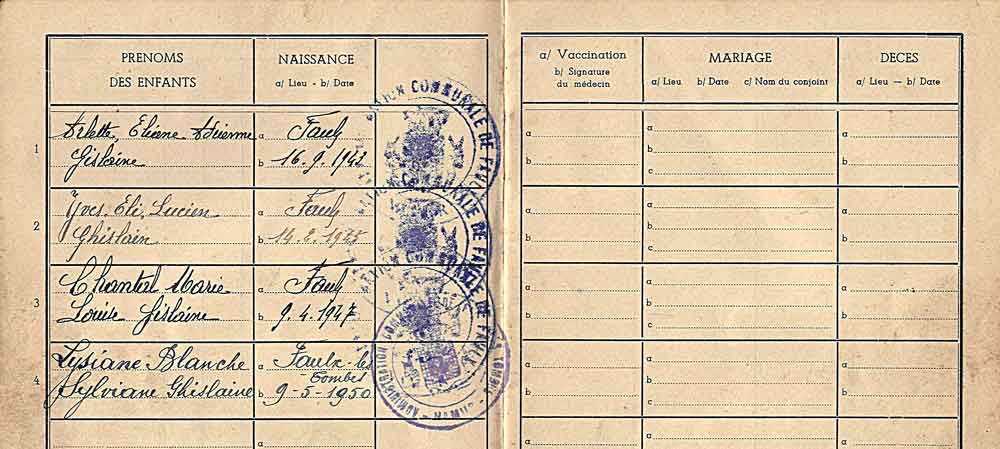 PRENOMS
DES ENFANTS
NAISSANCE
a/ Lieu - b/ Date
a/ Vaccination
b/ Signature
du médecin
MARIAGE
a/ Lieu b/ Date c/ Nom du conjoint
DECES
a/ Lieu — b/ Date
1
Arlette, Eliane Adrienne
Gislaine
a Faulx
b 16.9.1943
a
b
a
b
c
a
b
2
Yves. Eli. Lucien
Ghislain
a Faulx
b 14.2.1945
a
b
a
b
c
a
b
3
Chantal Marie
Louise Gislaine
a Faulx
b 9.4.1947
a
b
a
b
c
a
b
4
Lysiane Blanche
Sylviane Ghislaine
a Faulx-les
Tombes
b 9-5-1950
a
b
a
b
c
a
b
a
a
a
a
COMMUNALE DE FAULX
COMMUNALE DE FAULX
COMMUNALE DE FAULX
ADMINISTRATION COMMUNALE
NAMUR